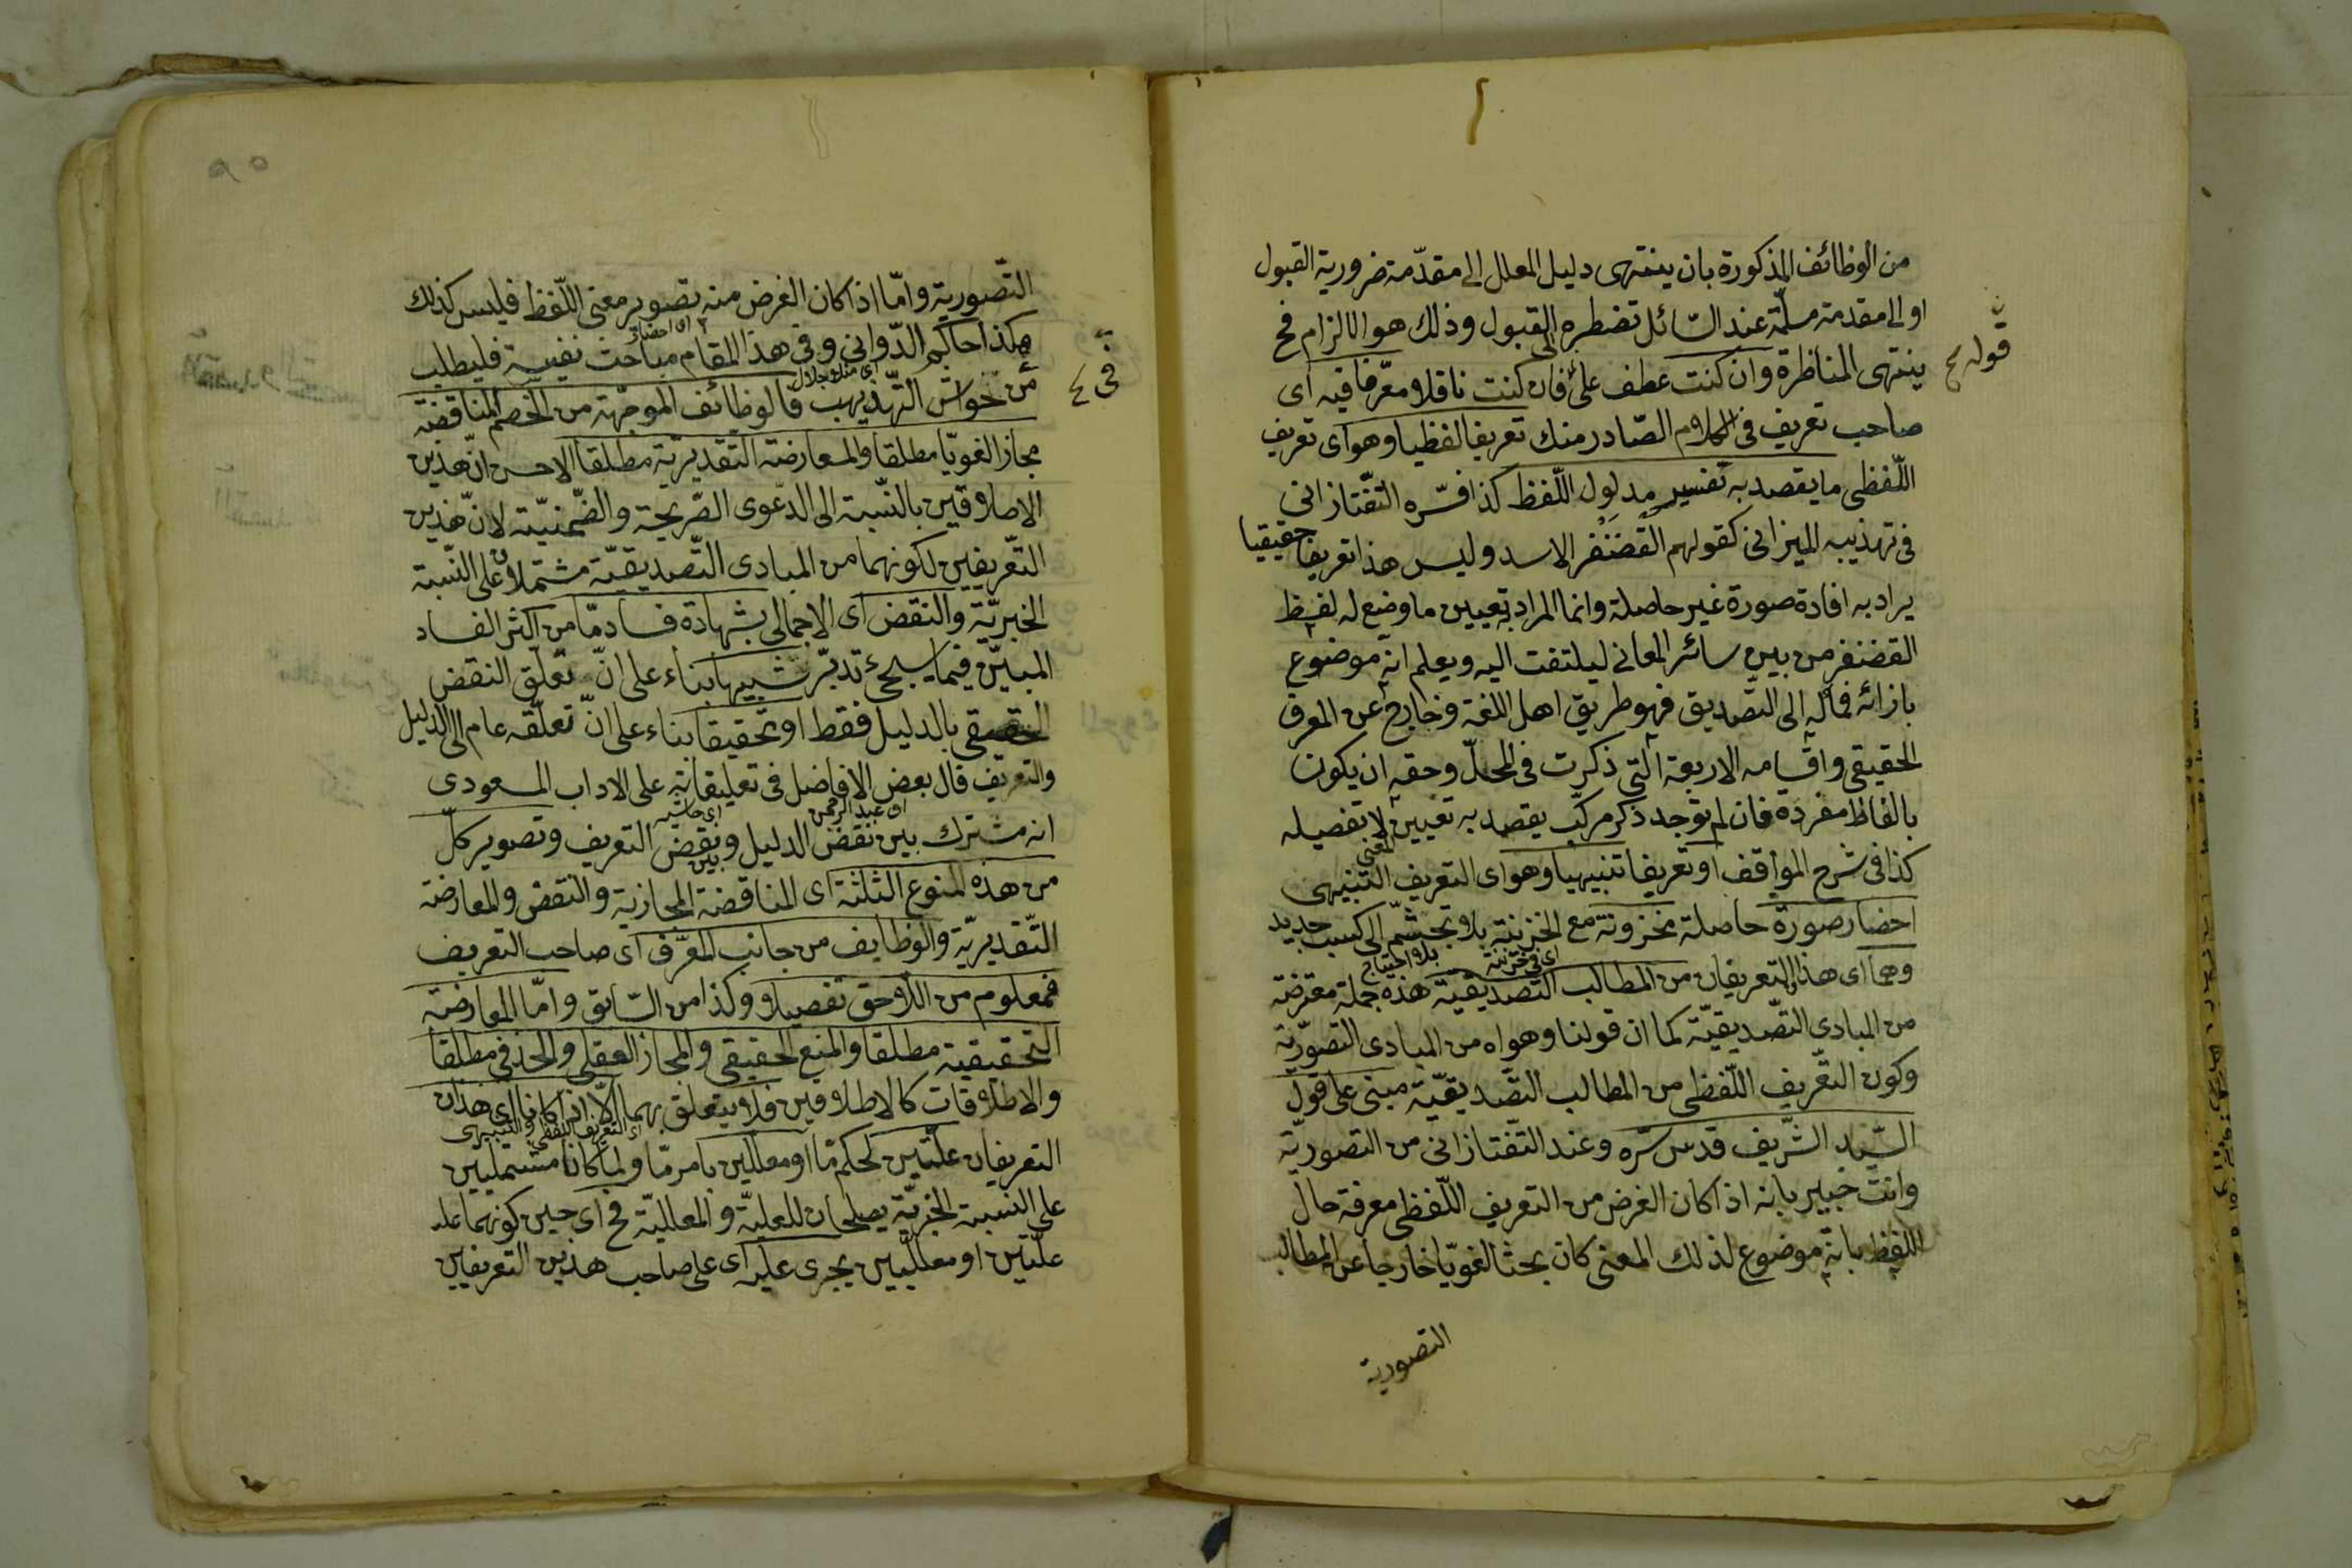 من الوظائف المذكورة بان ينتهى دليل المعلل الى مقدّمة ضرورية القبول
او الى مقدمة مسلّمة عند السّائل تضطره الى القبول وذلك هو الالزام فح
قوله ح
ينتهى المناظرة وان كنت عطف على فان كنت ناقلا معرّفا فيه اى
صاحب تعريف فى الكلام الصّادر منك تعريفا لفظيا وهو اى تعريف
اللّفظى ما يقصد به تفسير مدلول اللّفظ كذا فسّره التفتازانى
فى تهذيبه الميزانى كقولهم القضنفر الاسد وليس هذا تعريفا حقيقيا
يراد به افادة صورة غير حاصلة وانما المراد به تعيين ما وضع له لفظ
القضنفر من بين سائر المعانى ليلتفت اليه ويعلم انه موضوع
بازائه فماله الى التّصديق فهو طريق اهل اللغة وخارج عن المعرف
الحقيقى واقسامه الاربعة التى ذكرت فى المحلّ وحقه ان يكون
بالفاظ مفردة فان لم توجد ذكر مركّب يقصد به تعيين المعنى لا تفصيله
كذا فى شرح المواقف او تعريفا تنبيهيا وهو اى التعريف التنبيهى
احضار صورة حاصلة مخزونة مع الخزينة بلا تجشّم الى كسب جديد
اى فى خزينة بلا احتياج
وهما اى هذا التعريفان من المطالب التصديقيّة هذه جملة معترضة
من المبادى التّصديقيّة كما ان قولنا وهو اه من المبادى التصوّريّة
وكون التعّريف اللّفظى من المطالب التّصديقيّة مبنى على قول
السّيد الشّريف قدس سّره وعند التّفتازانى من التصوريّة
وانت خبير بانه اذا كان الغرض من التعريف اللّفظى معرفة حال
اللفظ بانه موضوع لذلك المعنى كان بحثا لغويّا خارجا عن المطالب
التصورية
التّصورية وامّا اذا كان الغرض منه تصوير معنى اللّفظ فليس كذلك
اى احضار
هكذا حاكم الدّوانى وفى هذا المقام مباحث نفيسة فليطلب
اى منلا جلال
من حواش التّهذيب فالوظائف الموجّهة من الخصم المناقضة
مجاز الغويّا مطلقا والمعارضة التقديريّة مطلقا الاحسن انّ هذين
الاطلاقين بالنّسبة الى الدّعوى الصّريحة والضّمنيّة لانّ هذين
التّعريفين لكونهما من المبادى التّصديقيّة مشتملان على النّسبة
الخبريّة والنقض اى الاجمالى بشهادة فساد مّا من اكثر الفساد
المبيّن فيما سيجئ تدبّر تشبيها بناء على انّ تعلّق النقض
الحقيقى بالدليل فقط او تحقيقا بناء على انّ تعلّقه عام الى الدليل
والتعريف قال بعض الافاضل فى تعليقاته على الاداب المسعودى
اى عبد الرحمن اى حاشيه
انه مشترك بين نقض الدليل وبين نقض التعريف وتصوير كلّ
من هذه المنوع الثلثة اى المناقضة المجازية والنقض والمعارضة
التّقديريّة والوظايف من جانب المعرّف اى صاحب التعريف
فمعلوم من اللاحق تفصيلا وكذا من السّابق وامّا المعارضة
التحقيقية مطلقا والمنع الحقيقى والمجاز العقلى والحذفى مطلقا
والاطلاقات كالاطلاقين فلا يتعلق بهما الّا اذا كانا اى هذان
اى التعريف اللفظى والتنبيهى
التعريفان علّتين لحكم مّا او معلّلين بامر مّا ولما كانا مشتملين
على النسبة الخبريّة يصلحان للعليّة والمعلليّة فح اى حين كونهما
علّتين او معلّلين يجرى عليه اى على صاحب هذين التعريفين